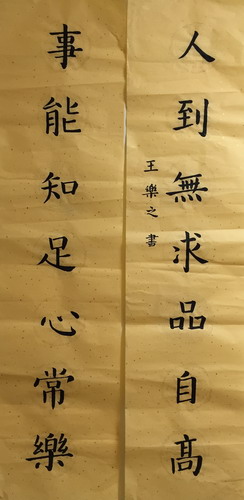 人到無求品自髙
事能知足心常樂
王樂之書